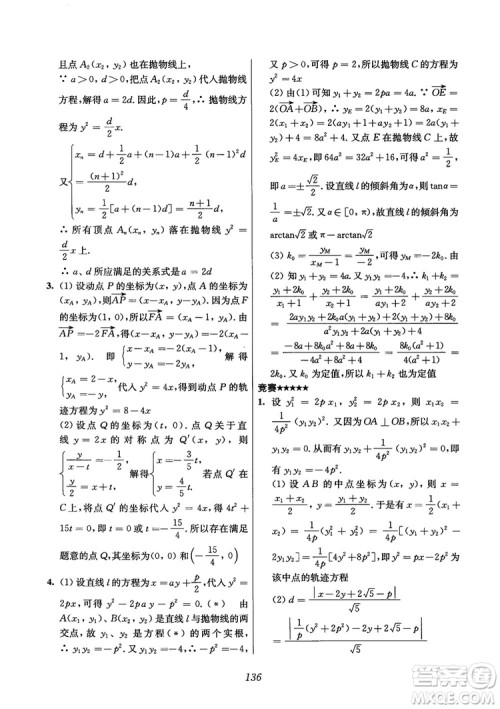 且点 A₂(x₂, y₂) 也在抛物线上
∵ a＞0, d＞0, 把点 A₂(x₂, y₂) 代入抛物线
方程, 解得 a＝2d. p＝d/4, ∴ 抛物线方
程为 y²＝d/2 x.
又 { xₙ＝d/2＋(n－1)a＋(n－1)²/2 d
＝(n＋1)²/2 d,
yₙ＝1/2[a＋(n－1)d]＝(n＋1)/2 d
∴ 所有顶点 Aₙ(xₙ, yₙ) 落在抛物线 y²＝
d/2 x 上.
∴ a、d 所应满足的关系式是 a＝2d
3. (1) 设动点 P 的坐标为(x, y), 点 A 的坐标为
(x_A, y_A), 则AP＝(x－x_A, y－y_A). 因为点 F
的坐标为(1, 0), 所以FA＝(x_A－1, y_A), 由
AP＝－2FA, 得 (x－x_A, y－y_A)＝－2(x_A－
1, y_A). 即 { x－x_A＝－2(x_A－1) y－y_A＝－2y_A 解得
{ x_A＝2－x y_A＝－y 代入 y²＝4x, 得到动点 P 的轨
迹方程为 y²＝8－4x
(2) 设点 Q 的坐标为(t, 0). 点 Q 关于直线
y＝2x 的对称点为 Q′(x, y), 则
{ y/(x－t)＝－1/2 y/2＝x＋t 解得 { x＝－3/5 t y＝4/5 t 若点 Q′ 在
C 上, 将点 Q′ 的坐标代入 y²＝8－4x, 得 4t²＋
15t＝0, 即 t＝0 或 t＝－15/4. 所以存在满足
题意的点 Q, 其坐标为(0, 0)和(－15/4, 0)
4. (1) 设直线 l 的方程为 x＝ay＋p/2 代入 y²＝
2px, 可得 y²－2pay－p²＝0(＊) 由
A(x₁, y₁), B(x₂, y₂)是直线与抛物线的两
交点, 故 y₁、y₂ 是方程(＊)的两个实根.
∴ y₁y₂＝－p². 又 y₁y₂＝－4, 所以－p²＝－4.
又 p＞0, 可得 p＝2, 所以所求抛物线方程为
y²＝4x
(2) 由(1)可知 y₁＋y₂＝2pa＝4a, ∵ OE＝
2(OA＋OB), ∴ x₀＝2(x₁＋x₂)＝
2(ay₁＋1＋ay₂＋1)＝2a(y₁＋y₂)＋4＝8a²＋
4, y₀＝2(y₁＋y₂)＝8a. 又点 E 在抛物线上,
y₀²＝4x₀, 可得 64a²＝4(8a²＋4), 即 a²＝1/2,
a＝±√2/2. 设直线 l 的倾斜角为 α, 则 tanα＝
1/a＝±√2, 所以可解得直线 l 的倾斜角为
arctan√2 或 π－arctan√2
(3) 可得 k₀＝y_M/(x_M－1)＝y_M/(－1－1)＝－y_M/2 由
(2) 知 y₁＋y₂＝4a, y₁y₂＝－4, ∴ k₁＋k₂＝
(y₁＋2k₀)/(x₁＋1)＋(y₂＋2k₀)/(x₂＋1)＝(y₁＋2k₀)/(ay₁＋2)＋(y₂＋2k₀)/(ay₂＋2)＝
(2ay₁y₂＋2(1＋ak₀)(y₁＋y₂)＋8k₀)/(a²y₁y₂＋2a(y₁＋y₂)＋4)＝
(－8a＋8a(1＋ak₀)＋8k₀)/(－4a²＋8a²＋4)＝(8k₀(a²＋1))/(4(a²＋1))＝
2k₀. 又 k₀ 为定值, 所以 k₁＋k₂ 也为定值
竞赛★★★★★
1. 设 y₁²＝1/2p x₁, y₂²＝1/2p x₂, 则 y₁²y₂²＝
1/4p² x₁x₂. 又因为 OA⊥OB, 所以 x₁x₂＝
－y₁y₂, 从而有 y₁y₂＝－1/4p², x₁x₂＝1/4p²
(1) 设 AB 的中点坐标为(x, y), 则 x＝
(x₁＋x₂)/2, y＝(y₁＋y₂)/2, 于是 x＝1/2(x₁＋x₂)＝
1/4p(2py₁²＋2py₂²)＝1/4p[(y₁＋y₂)²－
2y₁y₂]＝1/4p(4y²＋1/2p²), 即 y²＝px－1/8p² 为
该中点的轨迹方程
(2) d＝|x－2y＋2√5－p|/√5＝
|1/p(y²＋1/8p²)－2y＋2√5－p|/√5＝
136
答案圈
MXQE.COM